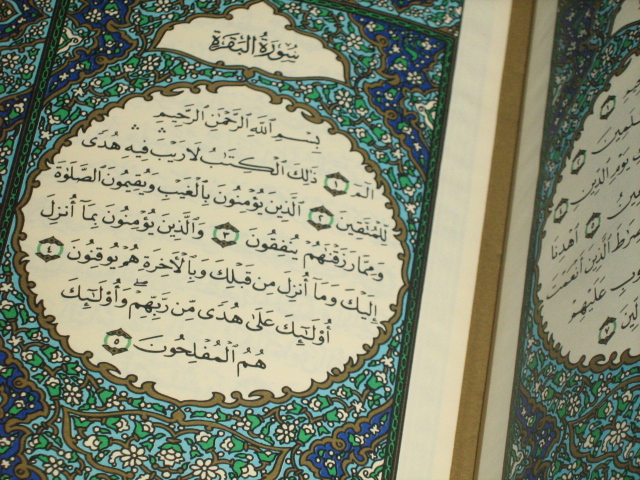 سُورَةُ البَقَرَةِ
بِسْمِ ٱللَّهِ ٱلرَّحْمَٰنِ ٱلرَّحِيمِ
الٓمٓ ١ ذَٰلِكَ ٱلْكِتَٰبُ لَا رَيْبَ ۛ فِيهِ ۛ هُدًى
لِّلْمُتَّقِينَ ٢ ٱلَّذِينَ يُؤْمِنُونَ بِٱلْغَيْبِ وَيُقِيمُونَ ٱلصَّلَوٰةَ
وَمِمَّا رَزَقْنَٰهُمْ يُنفِقُونَ ٣ وَٱلَّذِينَ يُؤْمِنُونَ بِمَآ أُنزِلَ
إِلَيْكَ وَمَآ أُنزِلَ مِن قَبْلِكَ وَبِٱلْأَخِرَةِ هُمْ يُوقِنُونَ ٤
أُو۟لَٰٓئِكَ عَلَىٰ هُدًى مِّن رَّبِّهِمْ ۖ وَأُو۟لَٰٓئِكَ
هُمُ ٱلْمُفْلِحُونَ ٥
يَوْمِ ٱلدِّينِ ٤
٥ ٱهْدِنَا
ٱلَّذِينَ أَنْعَمْتَ
عَلَيْهِمْ
٧